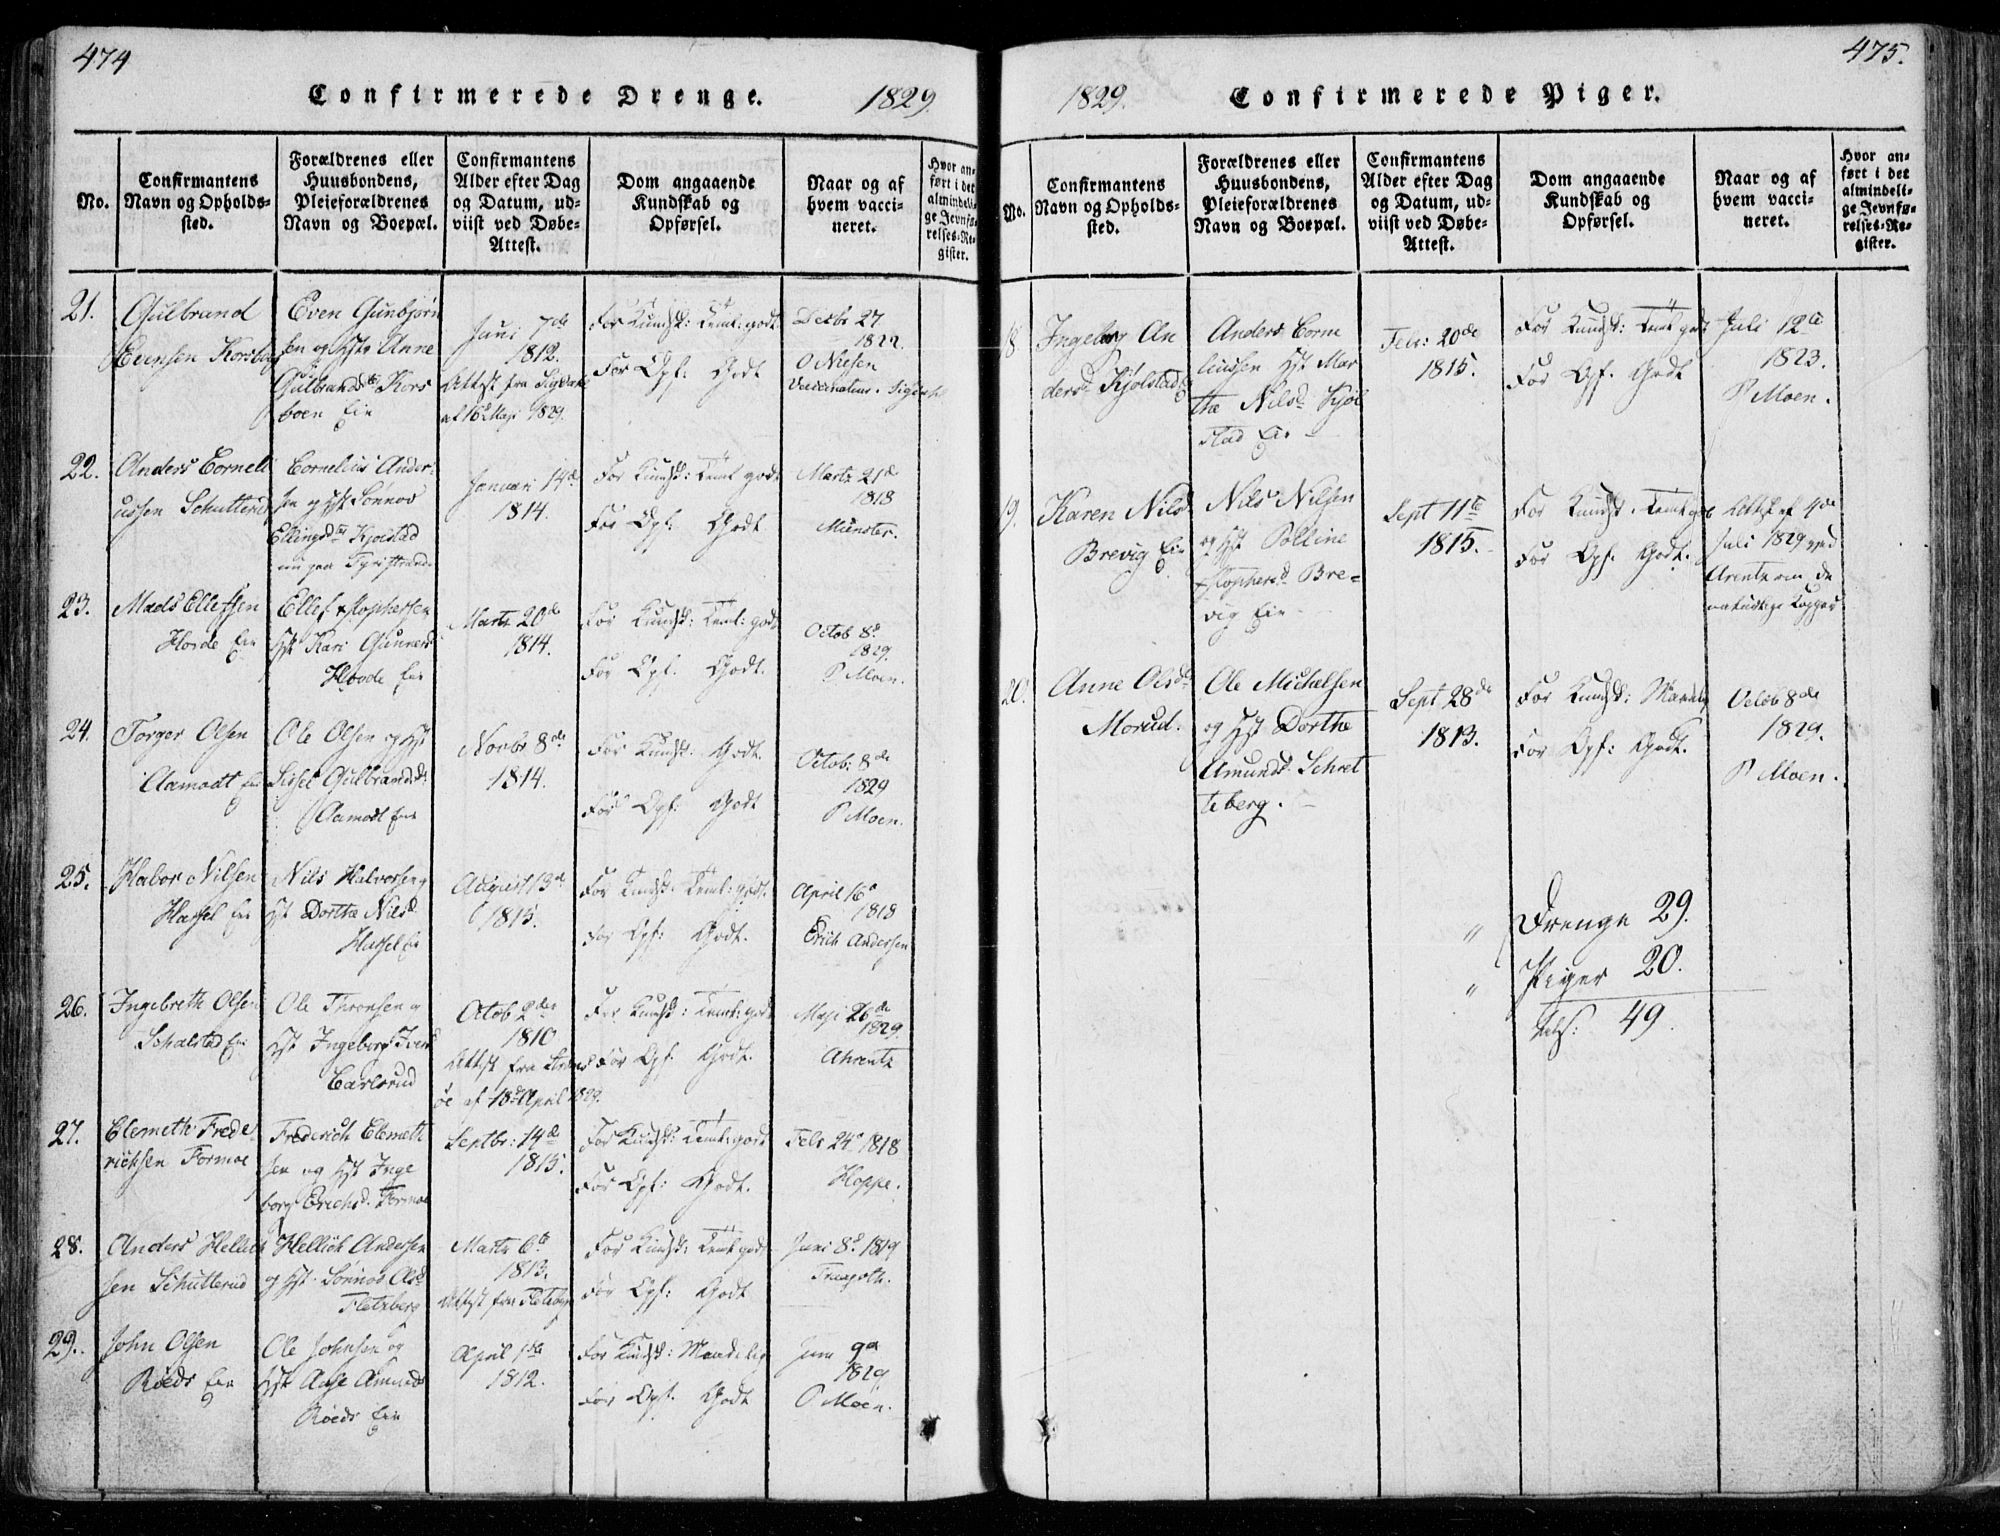 474
Confirmerede Drenge.
1829.
No.
Confirmantens Navn og Opholdssted.
Forældrenes eller Huusbondens, Pleieforældrenes Navn og Boepæl.
Confirmantens Alder efter Dag og Datum, udviist ved Døbe-Attest.
Dom angaaende Kundskab og Opførsel.
Naar og af hvem vaccineret.
Hvor anført i det almindelige Jevnførelses-Register.
21.
Gulbrand
Evensen
Even Gunbjørn
sen og Hst Anne
Gulbrandsd. Kors
boen Eie
Juni 7de
1812.
Attest fra Sigdahl
af 16d Maji 1829.
For Kundsk: Teml: godt
For Opf. Godt
Decbr 27
1822.
O Nielsen
22.
Anders Corneli
ussen Schutterud
Cornelius Ander-
sen og Hst Sønnov
Ellingsd. Kjølstad
nu paa Tyristrand
Januari 14de
1814.
For Kundsk: Teml godt
For Opf: Godt.
Marts 21d
1818
Münster.
23.
Mads Ellefsen
Horde Eie
Ellef Xstophersen
Hst Kari Gunnersd
Hoode Eie
Marts 20de
1814.
For Kundsk: Teml: godt
For Opf. Godt.
Octob 8d
1829.
P Moen.
24.
Torger Olsen
Aamodt Eie
Ole Olsen og Hst
Sissel Gulbrandsd:
Aamodt Eie
Novbr 8de
1814.
For Kundsk: Godt.
For Opf: Godt
Octob: 8de
1829
P Moen.
25.
Habor Nilsen
Hassel Eie
Nils Halvorsen og
Hst Dorthe Nilsd.
Hassel Eie
August 13de
1815.
For Kundsk: Teml: godt.
For Opf: Godt.
April 16d
1818
Erich Andersen
26.
Ingebreth Olsen
Schalstad Eie
Ole Thronsen og
Hst Ingeborg Iversd
Carlsrud
Octob 2den
1810
Attest fra
af 18d April 1829.
For Kundsk: Teml: godt
For Opf. Godt.
Maji 26de
1829.
Ahrentz
27.
Clemeth Frede
richsen Formoe
Frederich Clemeth
sen og Hst Inge
borg Erichsd. Formoe
Septbr: 14de
1815.
For Kundsk: Teml: godt
For Opf: Godt.
Febr 24d 1818
Hoppe.
28.
Anders Hellich
sen Schutterud
Hellich Andersen
og Hst. Sønnov Olsd
Fletzberg
Marts 6te
1813.
Attest fra Fletzberg
For Kundsk: Teml godt
For Opf: Godt
Juni 8d. 1819
29.
John Olsen
Røeds Eie
Ole Johnsen og
Hst Aase Amundsd
Røeds Eie
April 1ste
1812.
For Kundsk: Maadelig
For Opf. Godt
Juni 9de
1829
P Moen.
475.
1829.
Confirmerede Piger.
No.
Confirmantens Navn og Opholdssted.
Forældrenes eller Huusbondens, Pleieforældrenes Navn og Boepæl.
Confirmantens Alder efter Dag og Datum, udviist ved Døbe-Attest.
Dom angaaende Kundskab og Opførsel.
Naar og af hvem vaccineret.
Hvor anført i det almindelige Jevnførelses-Register.
18
Ingeborg An
dersd Kjølstad
Anders Corne
liussen Hst Mar
the Nilsd Kjøl
stad Eie
Febr: 20de
1815.
For Kundsk: Teml godt
For Opf. Godt
Juli 12te
1823.
P Moen.
19.
Karen Nilsd
Brevig Eie
Nils Nilsen
og Hst Polline
Xstophersd Bre-
vig Eie
Sept 11te
1815.
For Kundsk. Teml: godt
For Opf. Godt.
Attest af 4de
Juli 1829 ved
Arentz om de
naturlige Kopper
20.
Anne Olsd
Morud.
Ole Michelsen
og Hst Dorthe
Amundsd. Schret
teberg.
Sept 28de
1813.
For Kundsk: Maadelig
For Opf: Godt.
Octob 8de
1829.
P Moen.
" Drenge 29.
" Piger 20.
49.